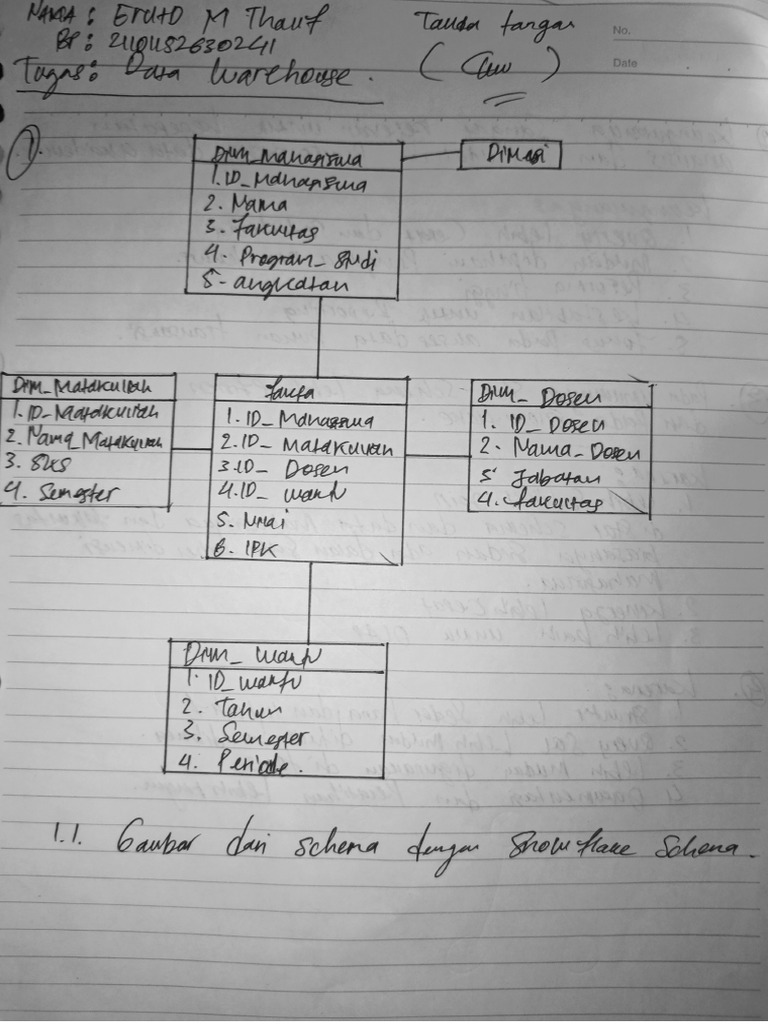 NAMA : M Thauf
Tanda tangan
No.
BP :
Date
Tugas : Data Warehouse .
1
Dim_Mahasiswa
Dimasi
1. ID_Mahasiswa
2. Nama
3. Fakultas
4. Program_Studi
5. angkatan
Dim_Matakuliah
1. ID_Matakuliah
2. Nama_Matakuliah
3. SKS
4. Semester
Fakta
1. ID_Mahasiswa
2. ID_Matakuliah
3. ID_Dosen
4. ID_waktu
5. Nilai
6. IPK
Dim_Dosen
1. ID_Dosen
2. Nama_Dosen
3. Jabatan
4. fakultas
Dim_waktu
1. ID_waktu
2. Tahun
3. Semester
4. Periode .
1.1. Gambar dari schema dengan Snowflake Schema .